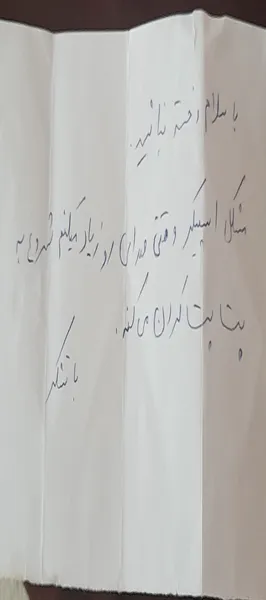 با سلام خسته نباشید.
مشکل اسپیکر وقتی صدای رو زیاد میکنم شروع به
پت پت کردن می کند.
با تشکر